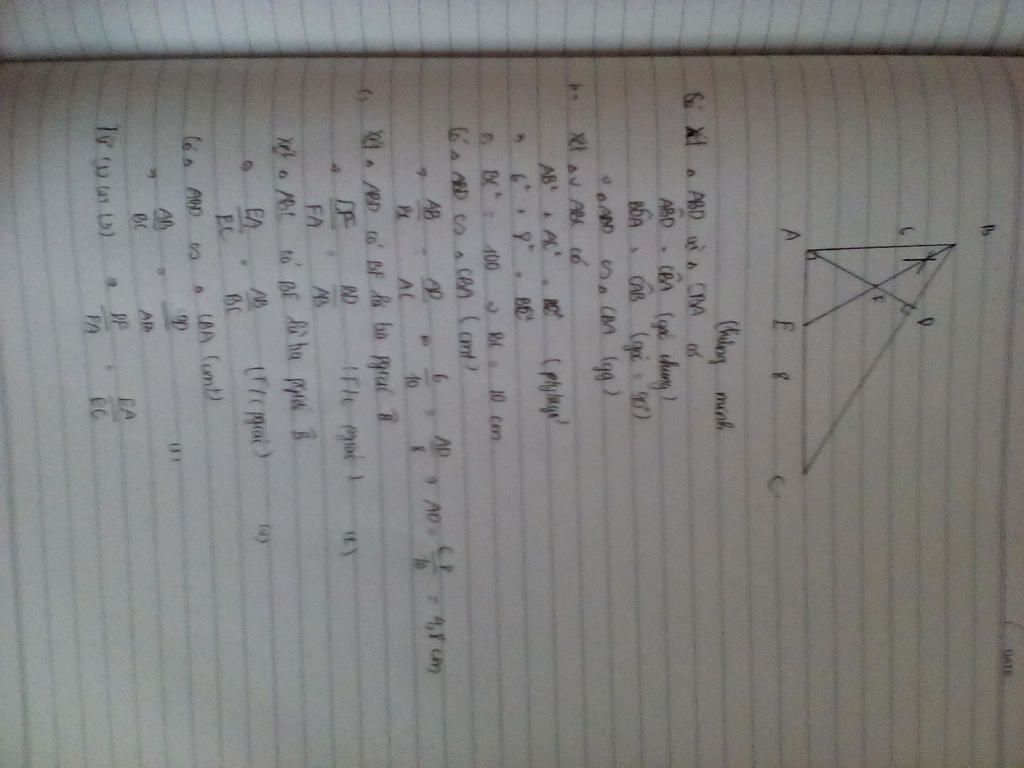 DATE
B
6
D
F
A
E
8
C
Chứng minh
Xét △ ABD và △ CBA có
ABD = CBA (góc chung)
BDA = CAB (góc = 90°)
△ ABD ∽ △ CBA (gg)
b- Xét △v ABC có
AB² + AC² = BC² (pytago)
6² + 8² = BC²
BC² = 100 BC = 10 cm
Có △ ABD ∽ △ CBA (cmt)
⇒ AB/BC = AD/AC ⇒ 6/10 = AD/8 ⇒ AD = 6.8/10 = 4,8 cm
c) Xét △ ABD có BF là tia pgiác B
⇒ DF/FA = BD/AB (T/c pgiác) (1)
Xét △ ABC có BE là tia pgiác B
⇒ EA/EC = AB/BC (T/c pgiác) (2)
Có △ ABD ∽ △ CBA (cmt)
⇒ AB/BC = BD/AB (3)
Từ (1) (2) (3) ⇒ DF/FA = EA/EC